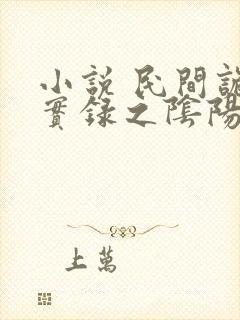 小說 民間詭
實錄之陰陽
上萬